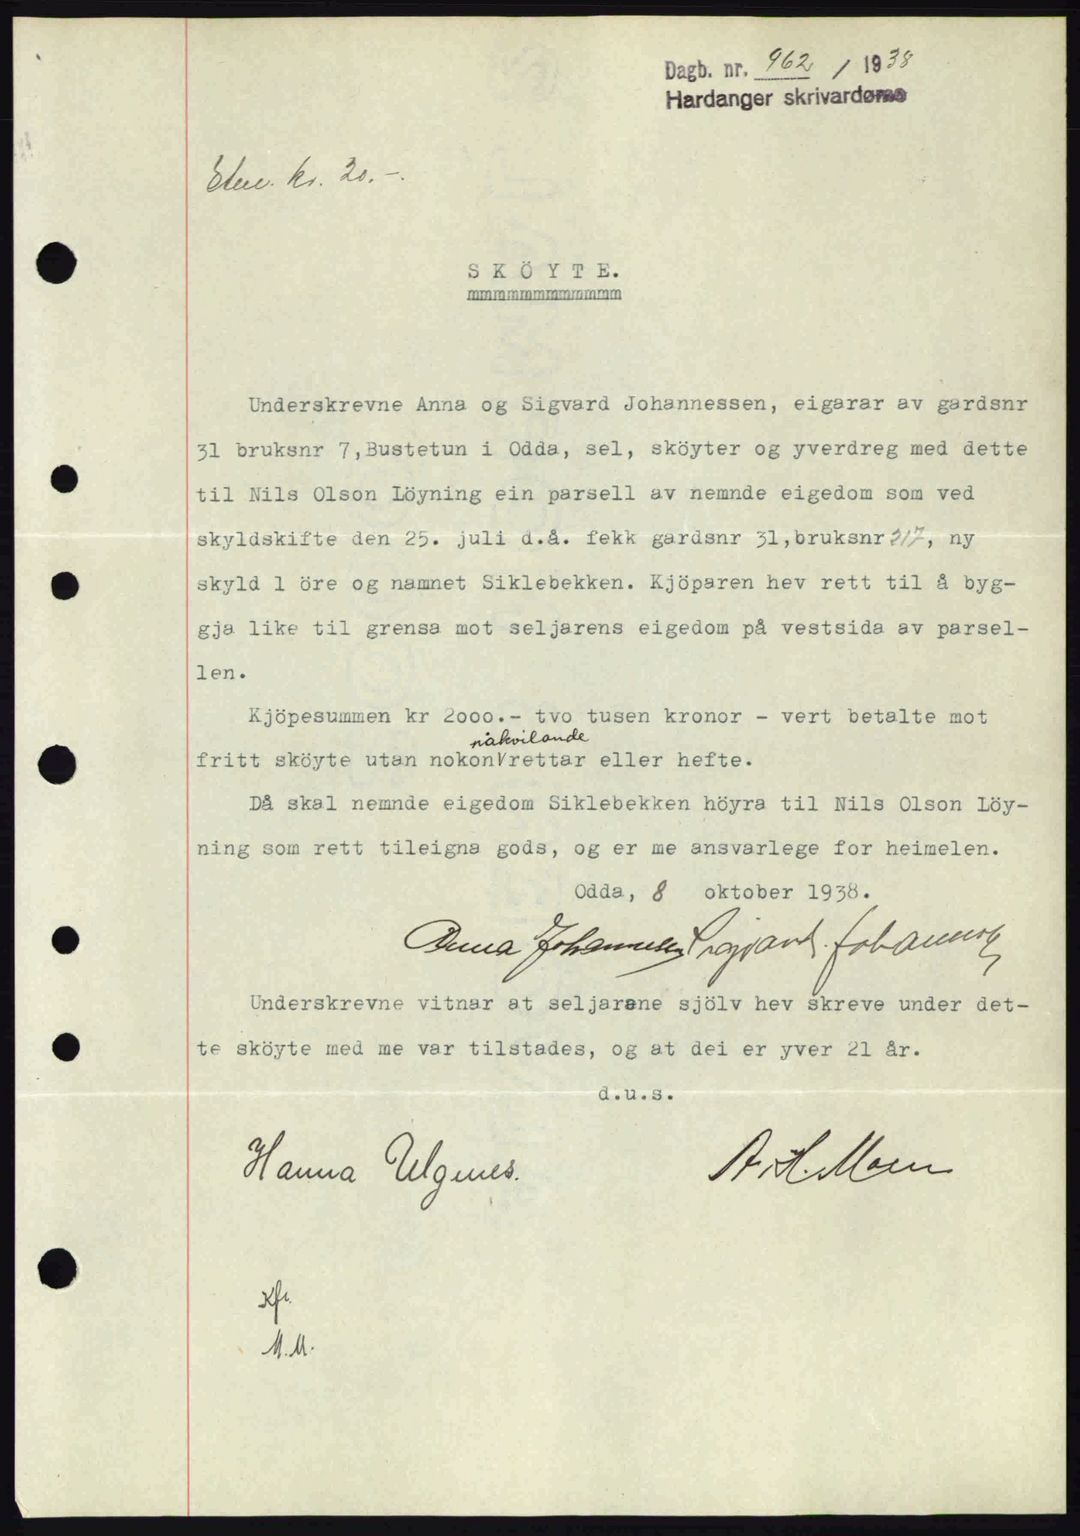 Dagb. nr. 962 / 1938
Hardanger skrivardøme
Stm. kr. 20.-.
S K Ö Y T E.
mmmmmmmmmmmm
Underskrevne Anna og Sigvard Johannessen, eigarar av gardsnr
31 bruksnr 7,Bustetun i Odda, sel, sköyter og yverdreg med dette
til Nils Olson Löyning ein parsell av nemnde eigedom som ved
skyldskifte den 25. juli d.å. fekk gardsnr 31,bruksnr 217, ny
skyld 1 öre og namnet Siklebekken. Kjöparen hev rett til å byg-
gja like til grensa mot seljarens eigedom på vestsida av parsel-
len.
Kjöpesummen kr 2000.- tvo tusen kronor - vert betalte mot
påkvilande
fritt sköyte utan nokon rettar eller hefte.
Då skal nemnde eigedom Siklebekken höyra til Nils Olson Löy-
ning som rett tileigna gods, og er me ansvarlege for heimelen.
Odda, 8 oktober 1938.
Anna Johannesen Sigvard Johannesen
Underskrevne vitnar at seljarane sjölv hev skreve under det-
te sköyte med me var tilstades, og at dei er yver 21 år.
d.u.s.
Hanna Ulgenes. A. H. Moen
Kfr.
M.M.